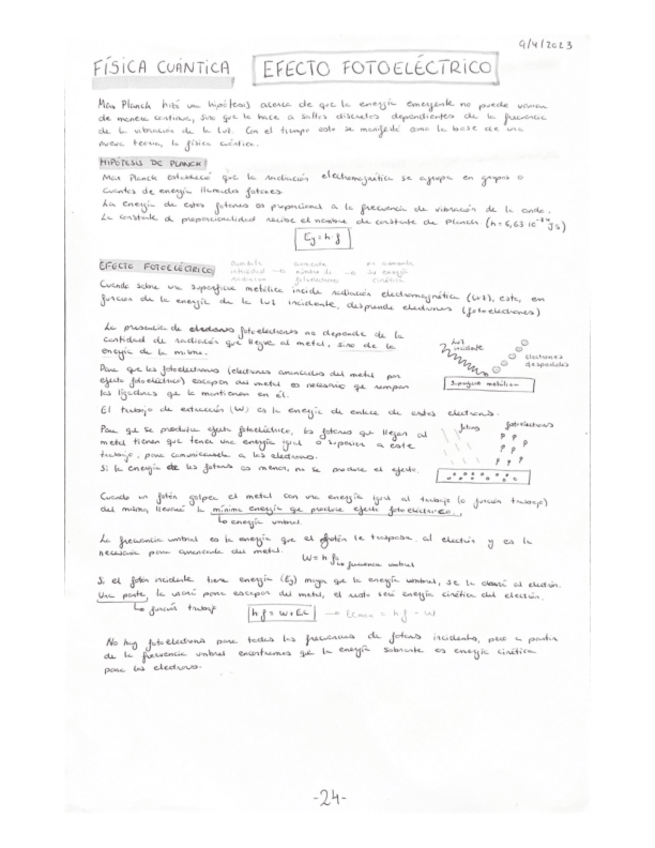 9/4/2023
FÍSICA CUÁNTICA EFECTO FOTOELÉCTRICO
Max Planck hizo una hipótesis acerca de que la energía emergente no puede variar
de manera continua, sino que lo hace a saltos discretos dependientes de la frecuencia
de la vibración de la luz. Con el tiempo esto se manifestó como la base de una
nueva teoría, la física cuántica.
HIPÓTESIS DE PLANCK
Max Planck estableció que la radiación electromagnética se agrupa en grupos o
cuantos de energía llamados fotones.
La energía de estos fotones es proporcional a la frecuencia de vibración de la onda.
La constante de proporcionalidad recibe el nombre de constante de Planck (h = 6,63·10⁻³⁴ Js)
Ef = h·f
EFECTO FOTOELÉCTRICO
aumenta intensidad radiación → aumenta número de fotoelectrones → no aumenta su energía cinética
Cuando sobre una superficie metálica incide radiación electromagnética (luz), esta, en
función de la energía de la luz incidente, desprende electrones (fotoelectrones)
La presencia de electrones fotoelectrones no depende de la
cantidad de radiación que llegue al metal, sino de la
energía de la misma.
Luz incidente
Electrones despedidos
Superficie metálica
Para que los fotoelectrones (electrones arrancados del metal por
efecto fotoeléctrico) escapen del metal es necesario que rompan
las ligaduras que lo mantienen en él.
El trabajo de extracción (W) es la energía de enlace de estos electrones.
Para que se produzca efecto fotoeléctrico, los fotones que llegan al
metal tienen que tener una energía igual o superior a este
trabajo, para comunicársela a los electrones.
Si la energía de los fotones es menor, no se produce el efecto.
fotones
fotoelectrones
Cuando un fotón golpea el metal con una energía igual al trabajo (o función trabajo)
del mismo, llevará la mínima energía que produce efecto fotoeléctrico.
↳ energía umbral.
La frecuencia umbral es la energía que el fotón le traspasa al electrón y es la
necesaria para arrancarla del metal.
W = h·f₀ ↳ frecuencia umbral
Si el fotón incidente tiene energía (Ef) mayor que la energía umbral, se la cederá al electrón.
Una parte, la usará para escapar del metal, el resto será energía cinética del electrón.
↳ función trabajo
h·f = W + Ec → Ecmax = h·f - W
No hay fotoelectrones para todas las frecuencias de fotones incidentes, pero a partir
de la frecuencia umbral encontramos que la energía sobrante es energía cinética
para los electrones.
-24-